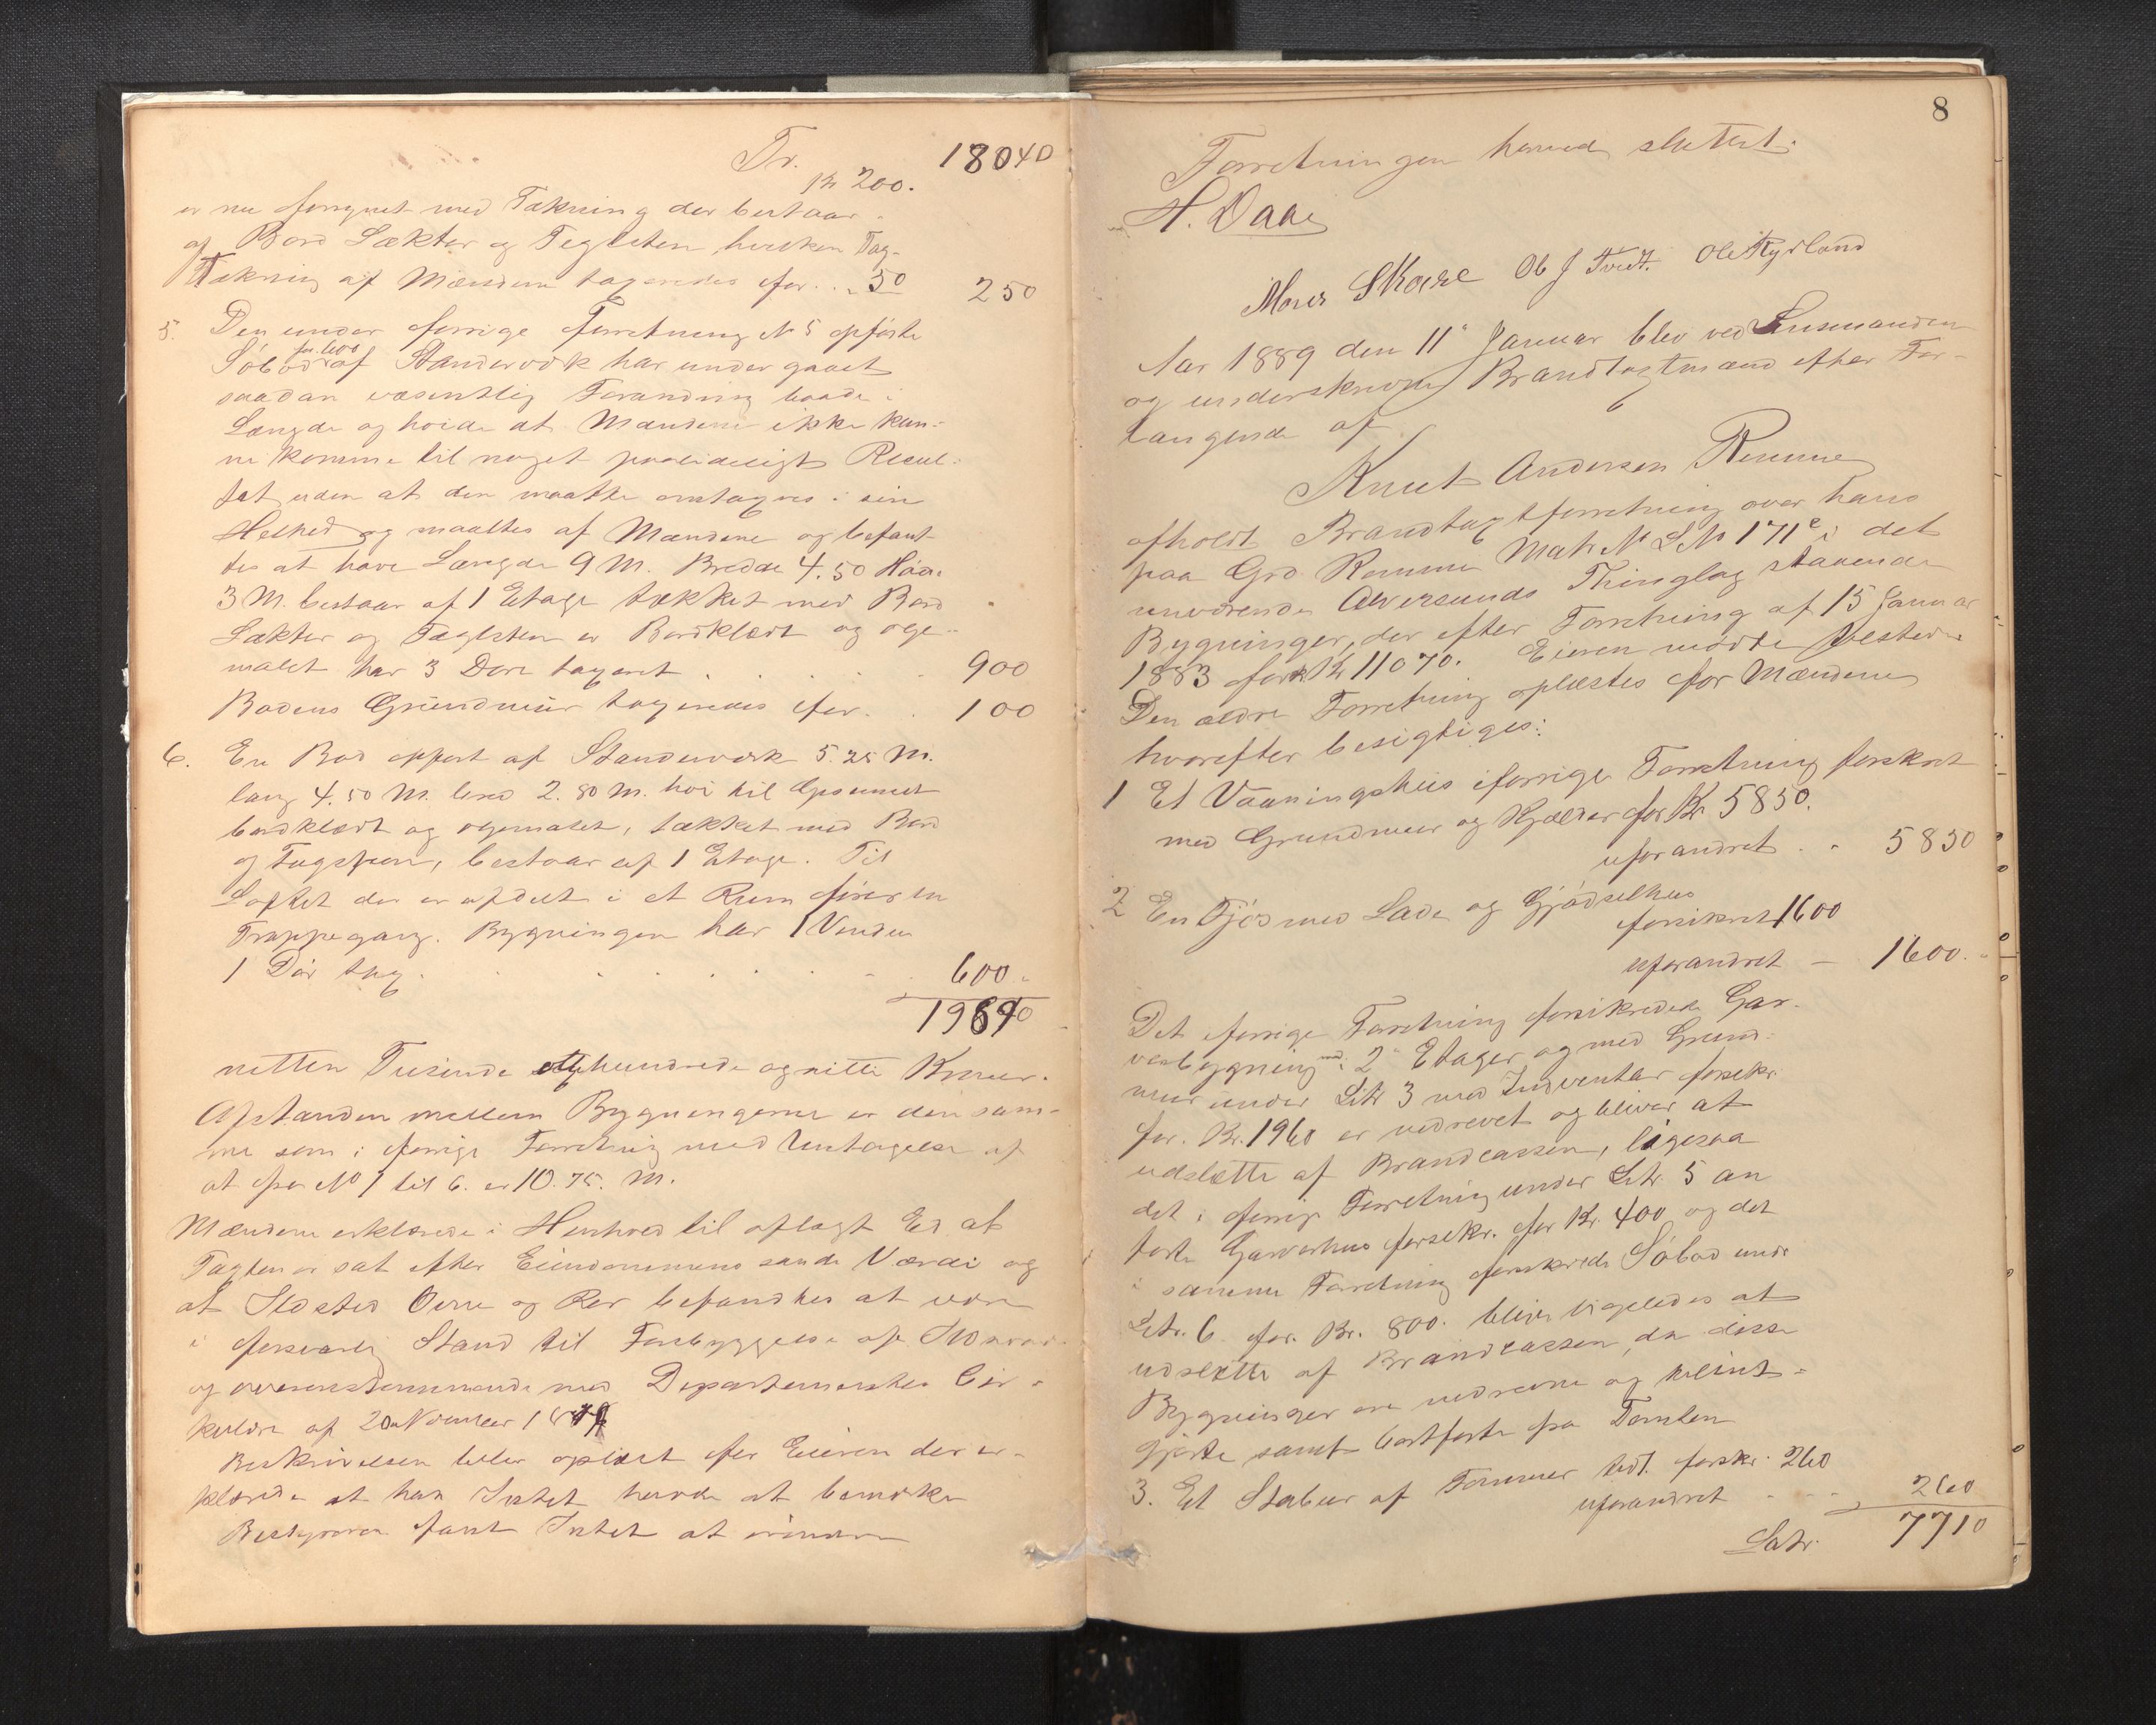 Tr. 18040
Kr 200.
er nu forsynet med Tækning der bestaar
af Bord Lækter og Teglsten, hvilken Tag-
Tækning af Mændene taxeredes for . . 50 250
5. Den under forrige Forretning N 5 opførte
for 600
Søbod af Standerværk har undergaaet
saadan væsentlig Forandring baade i
Længde og høide at Mændene ikke kun-
ne komme til noget paalideligt Resul-
tat, uden at den maatte omtaxeres i sin
Helhed og maaltes af Mændene og befant
tes at have Længde 9 M. Bredde 4.50 Høide
3 M. bestaar af 1 Etage tækket med Bord
Lækter og Teglsten er Bordklædt og olje-
malet har 3 Døre taxeret . . . . . 900
Bodens Grundmur taxeredes for . . 100
6. En Bod opført af Standerværk 5.25 M.
lang 4.50 M. bred 2.80 M. høi til Gesimset
bordklædt og oljemalet, tækket med Bord
og Tagspon, bestaar af 1 Etage. Til
Loftet der er afdelt i et Rum fører en
Trappegang. Bygningen har 1 Vindu
1 Dør tax. . . . . . . . . 600
19890
nitten Tusinde otte hundrede og nitti Kroner.
Afstanden mellem Bygningerne er den sam-
me som i forrige Forretning med Undtagelse af
at fra No 1 til 6. er 10.75. M.
Mændene erklærede i Henhold til aflagt Ed at
Taxten er sat efter Eiendommens sande Værdi og
at Ildsted Ovne og Rør befandtes at være
i forsvarlig Stand til Forebyggelse af Ildsvaade
og overensstemmende med Departementets Cir-
kulære af 20 November 18
Beskrivelsen blev oplæst for Eieren der er-
klærede at han Intet havde at bemærke
Bestyreren fandt Intet at erindre
8
Forretningen hermed sluttet.
H. Daae
Mons Skare Ob J Tveit. Ole Kyrland
Aar 1889 den 11te Januar blev ved Lensmanden
og underskrevne Brandtaxtmænd efter For-
langende af
Knut Andersen Remme
afholdt Brandtaxtforretning over hans
paa Grd Remme Matr No L No 171 e i det
nuværende Alversunds Thinglag staaende
Bygninger, der efter Forretning af 15 Januar
1883 for Kr 11070. Eieren mødte tilstede
Den ældre Forretning oplæstes for Mændene
hvorefter besigtiges:
1 Et Vaaningshus iforrige Forretning forsikret
med Grundmur og Kjælder for Kr 5850.
uforandret . . 5850
2 En Fjøs med Lade og Gjødselhus
forsikret 1600
uforandret — 1600.
Det iforrige Forretning forsikrede Gar-
veribygning med 2 Etager og med Grund-
mur under Litr 3 med Inventar forsikr.
for. Kr. 1960 er nedrevet og bliver at
udslette af Brandcassen, ligesaa
det i forrige Forretning under Litr. 5 an
førte Garverhus forsikr. for Kr. 400 og det
i samme Forretning forsikrede Søbod under
Litr. 6 for. Kr. 800. bliver ligeledes at
udslette af Brandcassen, da disse
Bygninger ere nedrevne og tilint-
gjorte samt bortførte fra Tomten
3. Et Stabur af Tømmer tidl. forsikr. 260
uforandret . . . 260
Latr. 7710